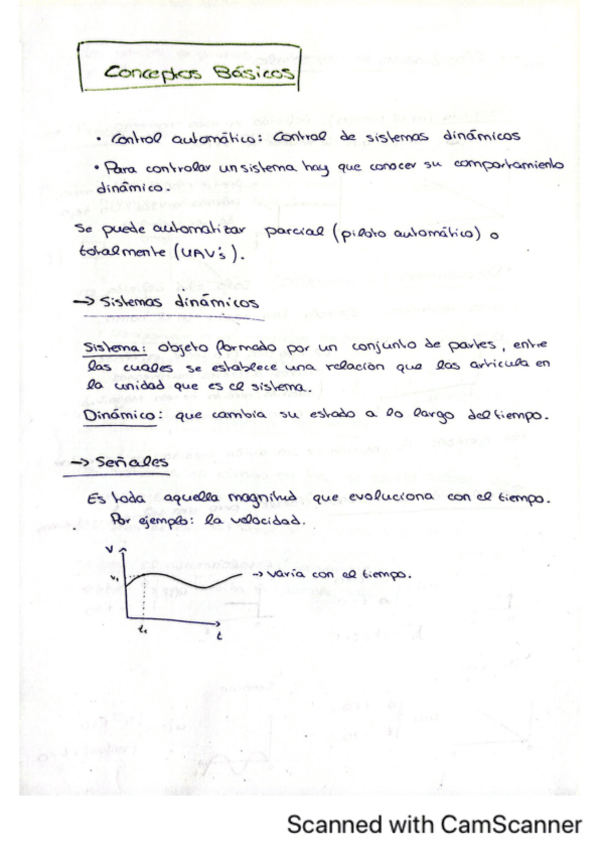 Conceptos Básicos
• Control automático: Control de sistemas dinámicos
• Para controlar un sistema hay que conocer su comportamiento
dinámico.
Se puede automatizar parcial (piloto automático) o
totalmente (UAV's).
→ Sistemas dinámicos
Sistema: objeto formado por un conjunto de partes, entre
las cuales se establece una relación que las articula en
la unidad que es el sistema.
Dinámico: que cambia su estado a lo largo del tiempo.
→ Señales
Es toda aquella magnitud que evoluciona con el tiempo.
Por ejemplo: la velocidad.
V
V₁ → varía con el tiempo.
t₁ t
Scanned with CamScanner